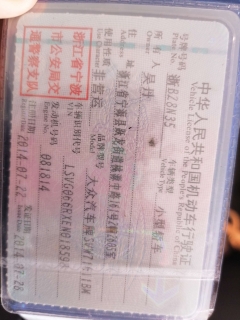 中华人民共和国机动车行驶证
Vehicle License of the People's Republic of China
号牌号码
Plate No.
浙B28U35
车辆类型
Vehicle Type
小型轿车
所有人
Owner
吴丹
住址
Address
浙江省宁海县
使用性质
Use Character
非营运
品牌型号
Model
大众汽车牌
浙江省宁波
市公安局交
通警察支队
车辆识别代号
VIN
发动机号码
Engine No.
081814
注册日期
Register Date
2014-07-22
发证日期
Issue Date
2014-07-28